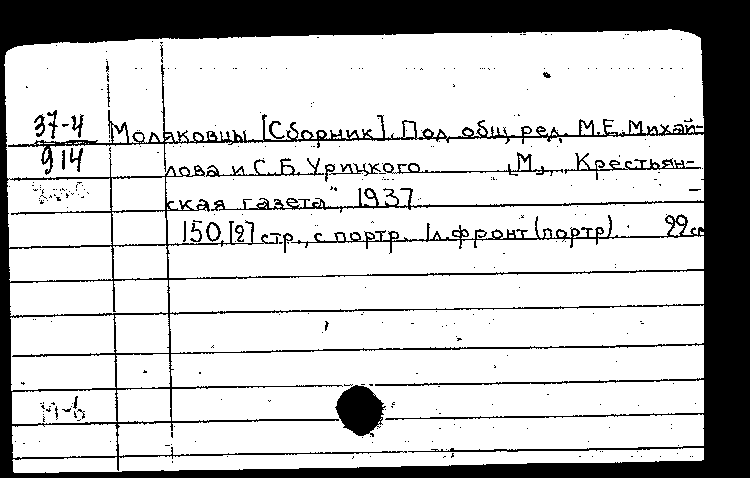 37-4 Моляковцы [Сборник]. Под общ. ред. М.Е. Михай-
914 лова и С.Б. Урицкого. [М.], „Крестьян-
ская газета", 1937. –
150, [2] стр., с портр. 1 л. фронт (портр). 22 см
М-в